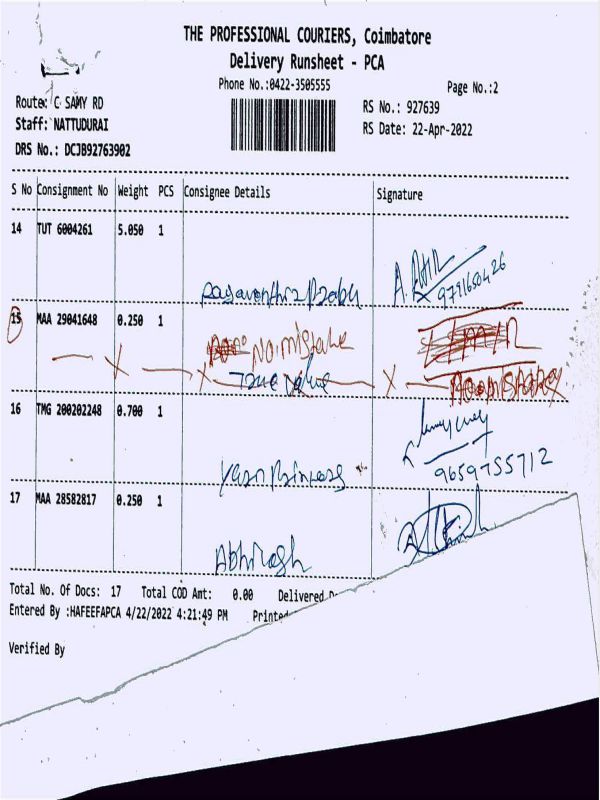 THE PROFESSIONAL COURIERS, Coimbatore
Delivery Runsheet - PCA
Phone No.:0422-3505555
Page No.:2
Route: C SAMY RD
RS No.: 927639
Staff: NATTUDURAI
RS Date: 22-Apr-2022
DRS No.: DCJB92763902
S No Consignment No Weight PCS Consignee Details Signature
14 TUT 6004261 5.050 1
15 MAA 29041648 0.250 1
No mistake
True value
16 TMG 200202248 0.700 1
9659755712
17 MAA 28582817 0.250 1
Total No. Of Docs: 17 Total COD Amt: 0.00 Delivered
Entered By :HAFEEFAPCA 4/22/2022 4:21:49 PM Printe
Verified By